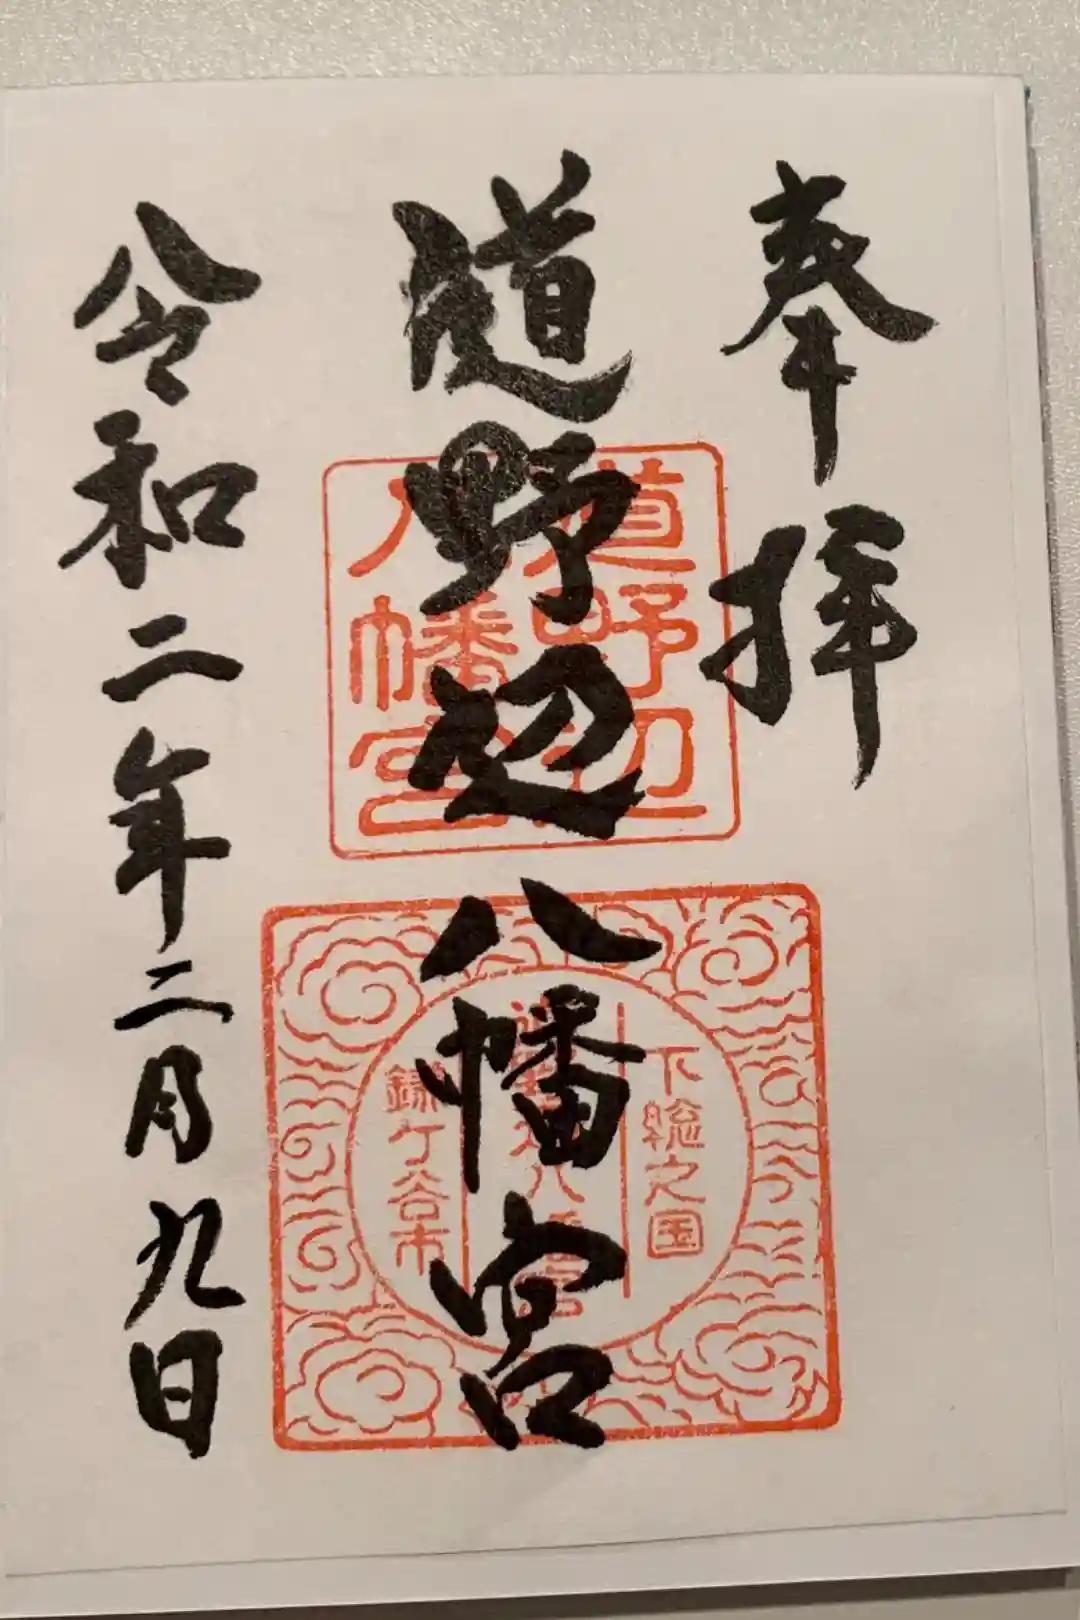 奉拝
道野辺八幡宮
道野辺
八幡宮
下総之国
鎌ケ谷市
令和二年二月九日